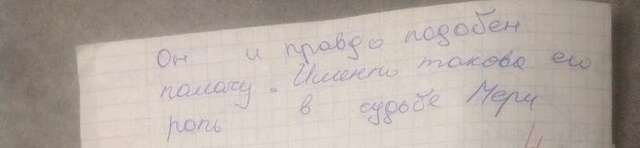 Он и правдо подобен
палачу. Именно такова его
роль в судьбе Мери